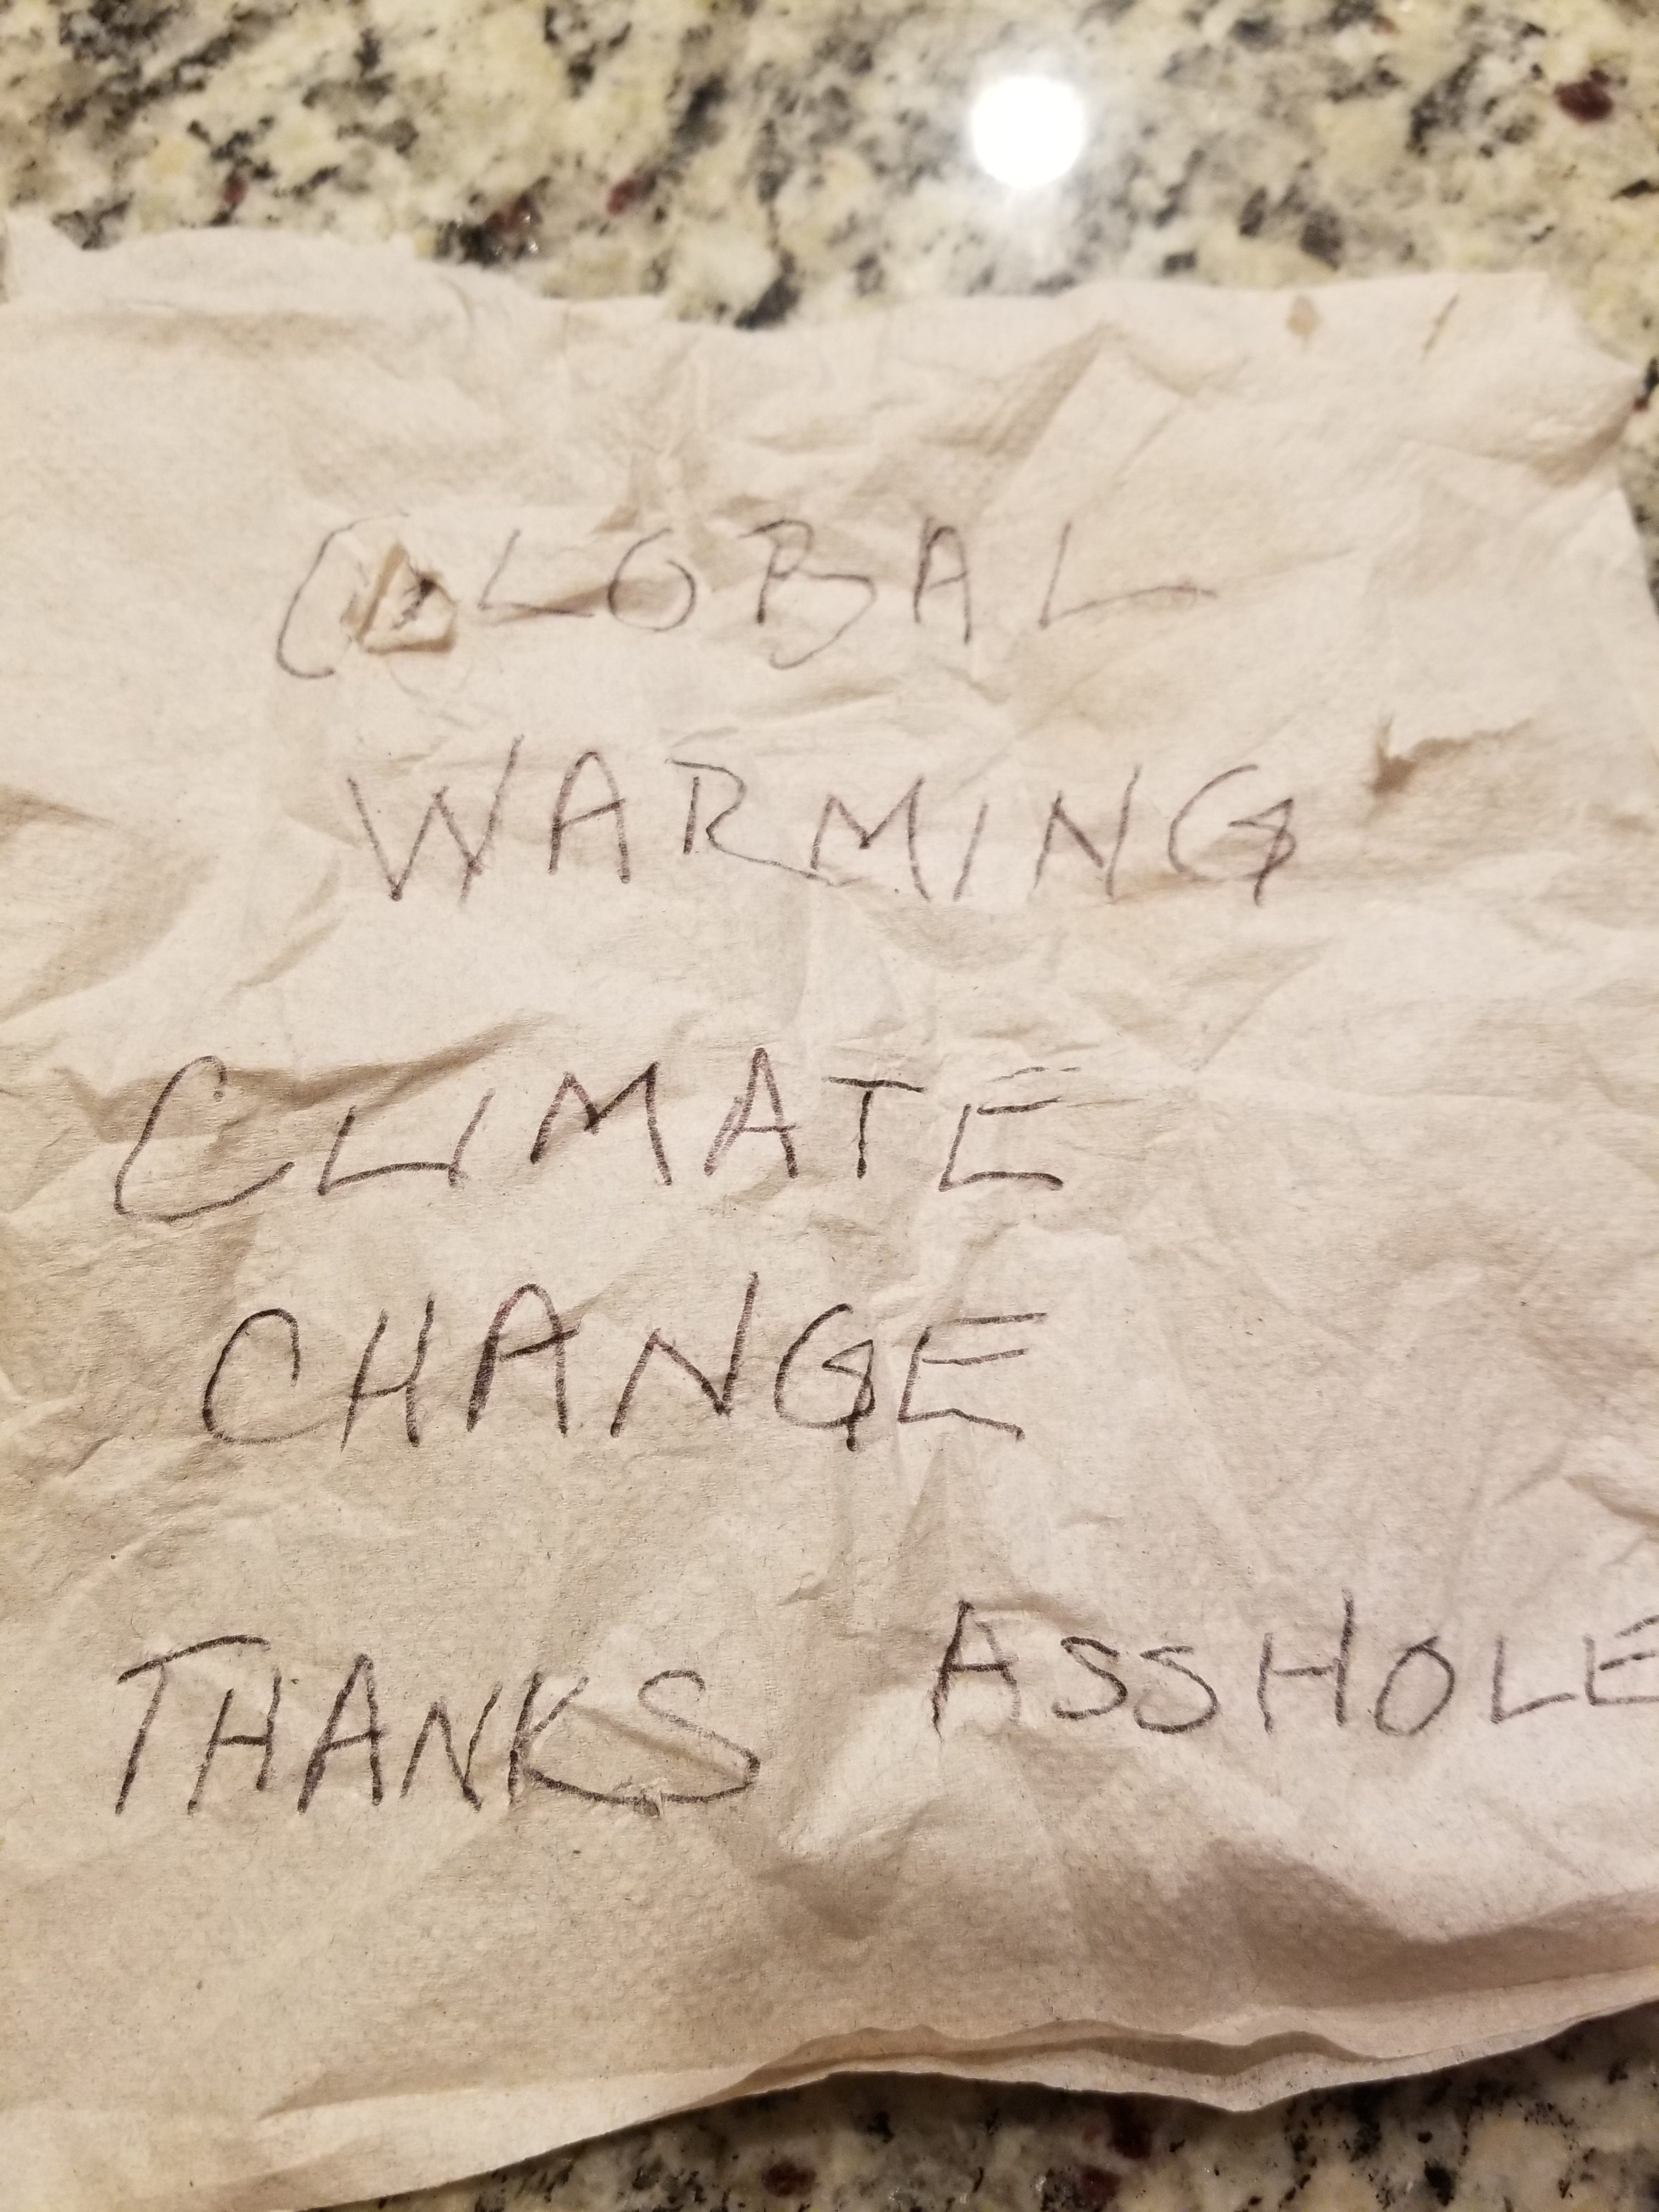 GLOBAL
WARMING
CLIMATE
CHANGE
THANKS ASSHOLE